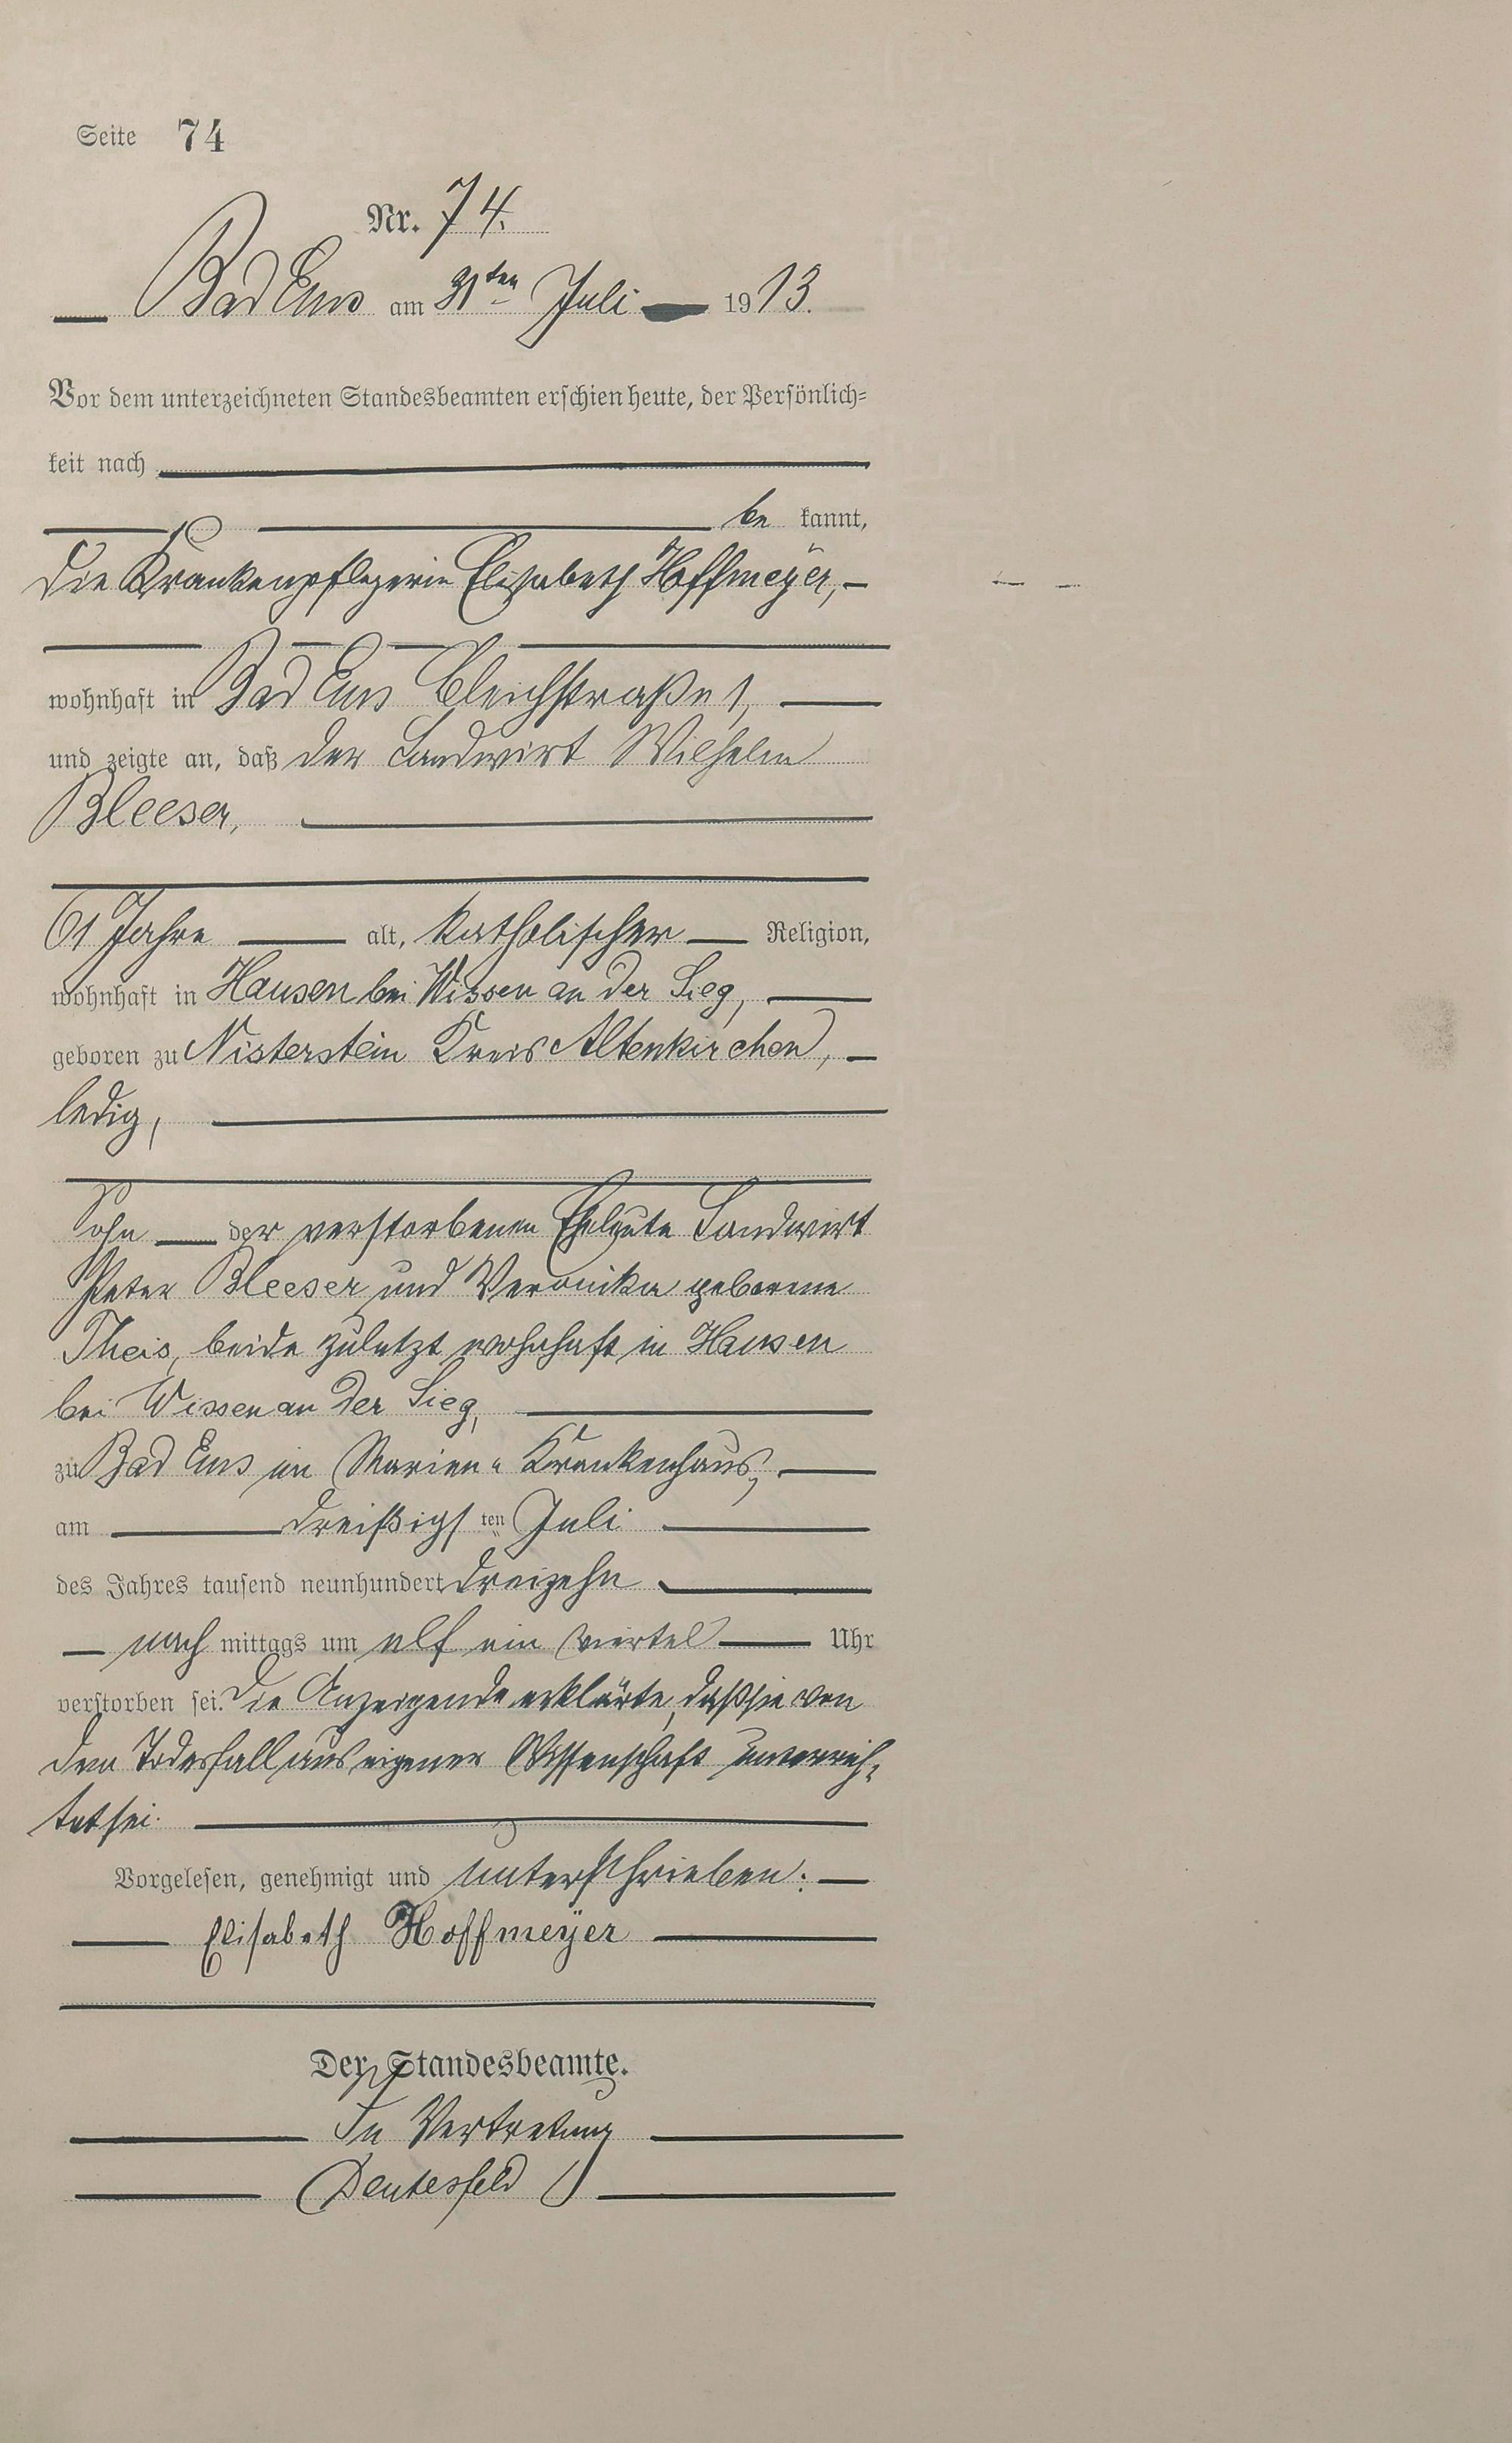 Seite 74
Nr. 74.
Bad Ems am 31ten Juli 1913.
Vor dem unterzeichneten Standesbeamten erschien heute, der Persönlich=
keit nach
be kannt,
die Krankenpflegerin Elisabeth Hoffmeÿer,
wohnhaft in Bad Ems Bleichstraße 1,
und zeigte an, daß der Landwirt Wilhelm
Bleeser,
61 Jahre alt, katholischer Religion,
wohnhaft in Hausen bei Wissen an der Sieg,
geboren zu Nisterstein Kreis Altenkirchen,
ledig,
Sohn der verstorbenen Eheleute Landwirt
Peter Bleeser und Veronika geborene
Theis, beide zuletzt wohnhaft in Hausen
bei Wissen an der Sieg,
zu Bad Ems im Marien-Krankenhaus,
am dreißigsten Juli
des Jahres tausend neunhundert dreizehn
nach mittags um elf ein viertel Uhr
verstorben sei. Die Anzeigende erklärte, daß sie von
dem Todesfall aus eigener Wissenschaft unterrich=
tet sei.
Vorgelesen, genehmigt und unterschrieben:
Elisabeth Hoffmeÿer
Der Standesbeamte.
In Vertretung